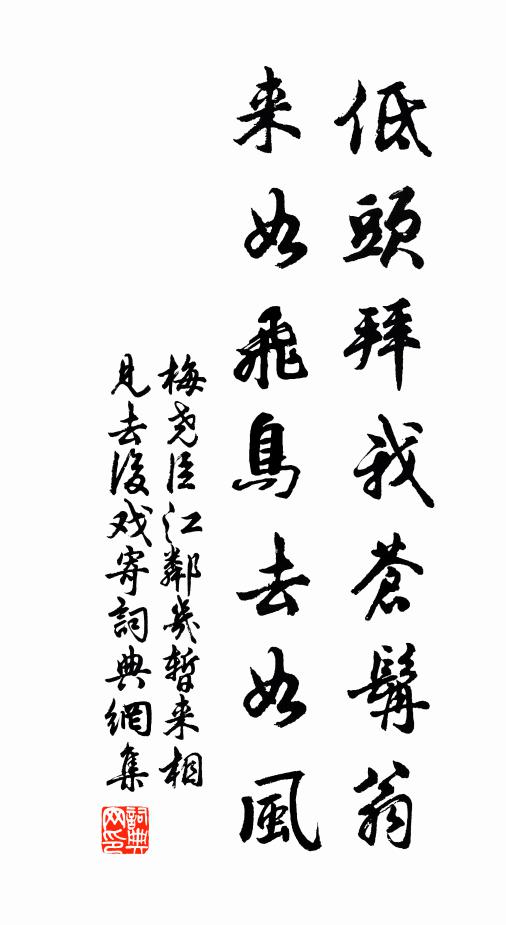 低頭拜我蒼髯翁
来如飛鳥去如風
梅尧臣江鄰幾暫来相
見去後戏寄詞典網集
詞典网印